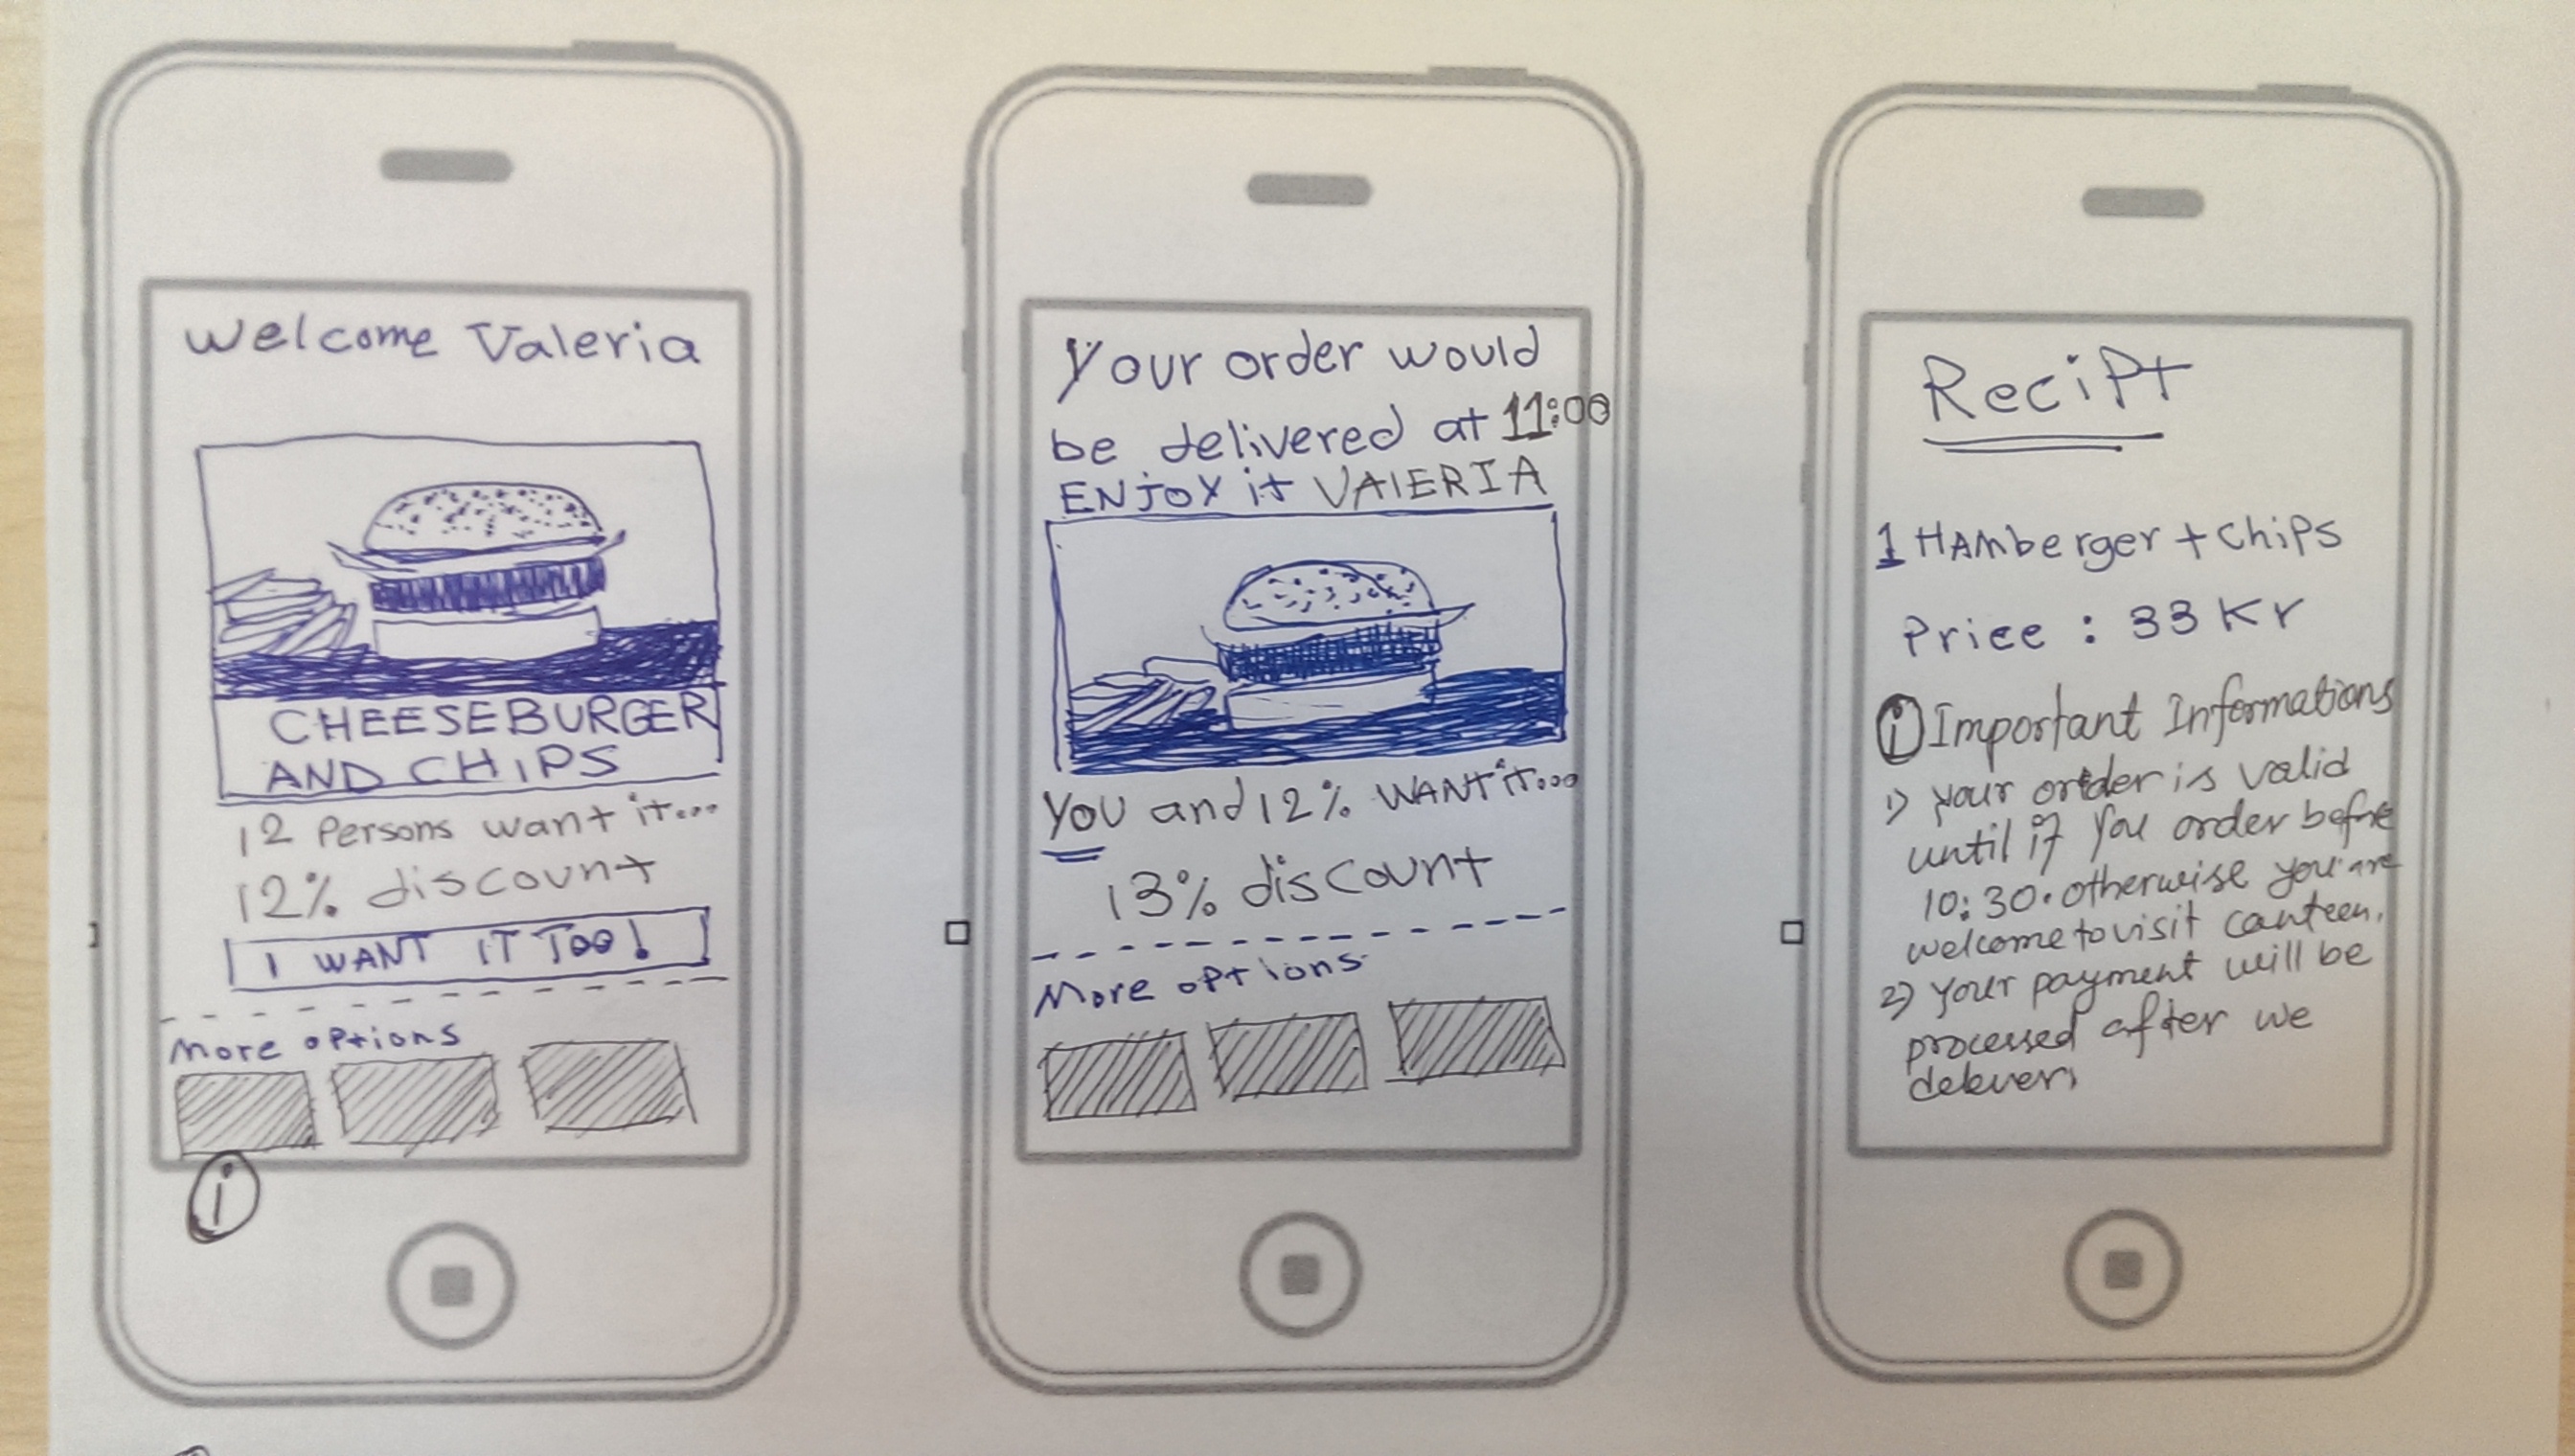 Welcome Valeria
CHEESEBURGER
AND CHIPS
12 Persons want it...
12% discount
I WANT IT TOO!
More options
i
Your order would
be delivered at 11:00
ENJOY it VAlERIA
YOU and 12% WANT it...
13% discount
More options
Recipt
1 HAmberger + chips
Price : 33 Kr
i Important Informations
1) your order is valid
until if you order before
10:30. otherwise you are
welcome to visit canteen.
2) your payment will be
processed after we